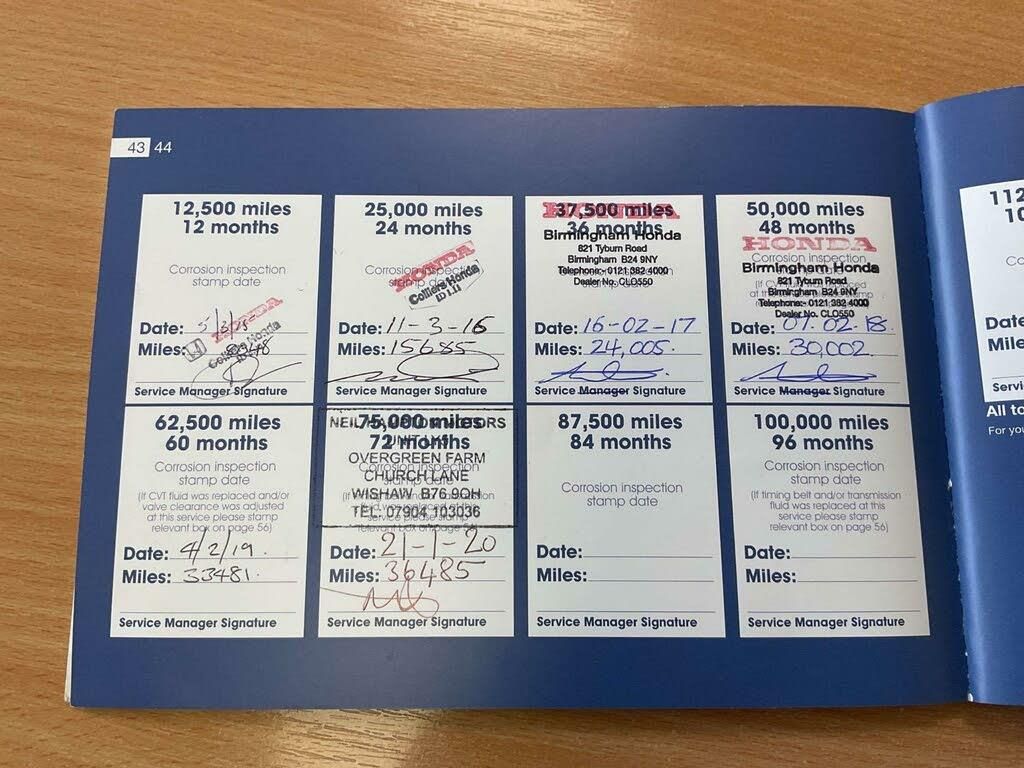 43 44
12,500 miles
12 months
Corrosion inspection
stamp date
HONDA
Colliers Honda
Date: 5/3/15
Miles:
Service Manager Signature
25,000 miles
24 months
Corrosion inspection
stamp date
HONDA
Colliers Honda
Date: 11-3-16
Miles: 15685
Service Manager Signature
37,500 miles
36 months
HONDA
Birmingham Honda
821 Tyburn Road
Birmingham B24 9NY
Telephone:- 0121 382 4000
Dealer No. CLO550
Date: 16-02-17
Miles: 24,005.
Service Manager Signature
50,000 miles
48 months
HONDA
Corrosion inspection
Birmingham Honda
821 Tyburn Road
Birmingham B24 9NY
Telephone:- 0121 382 4000
Dealer No. CLO550
Date: 01.02-18.
Miles: 30,002.
Service Manager Signature
62,500 miles
60 months
Corrosion inspection
stamp date
(If CVT fluid was replaced and/or
valve clearance was adjusted
at this service please stamp
relevant box on page 56)
Date: 4/2/19.
Miles: 33481.
Service Manager Signature
75,000 miles
72 months
Corrosion inspection
stamp date
service please stamp
relevant box on page 56)
OVERGREEN FARM
CHURCH LANE
WISHAW B76 9QH
TEL. 07904 103036
Date: 21-1-20
Miles: 36485
Service Manager Signature
87,500 miles
84 months
Corrosion inspection
stamp date
Date:
Miles:
Service Manager Signature
100,000 miles
96 months
Corrosion inspection
stamp date
(If timing belt and/or transmission
fluid was replaced at this
service please stamp
relevant box on page 56)
Date:
Miles:
Service Manager Signature
112
10
Date
Mile
Servi
All to
For you